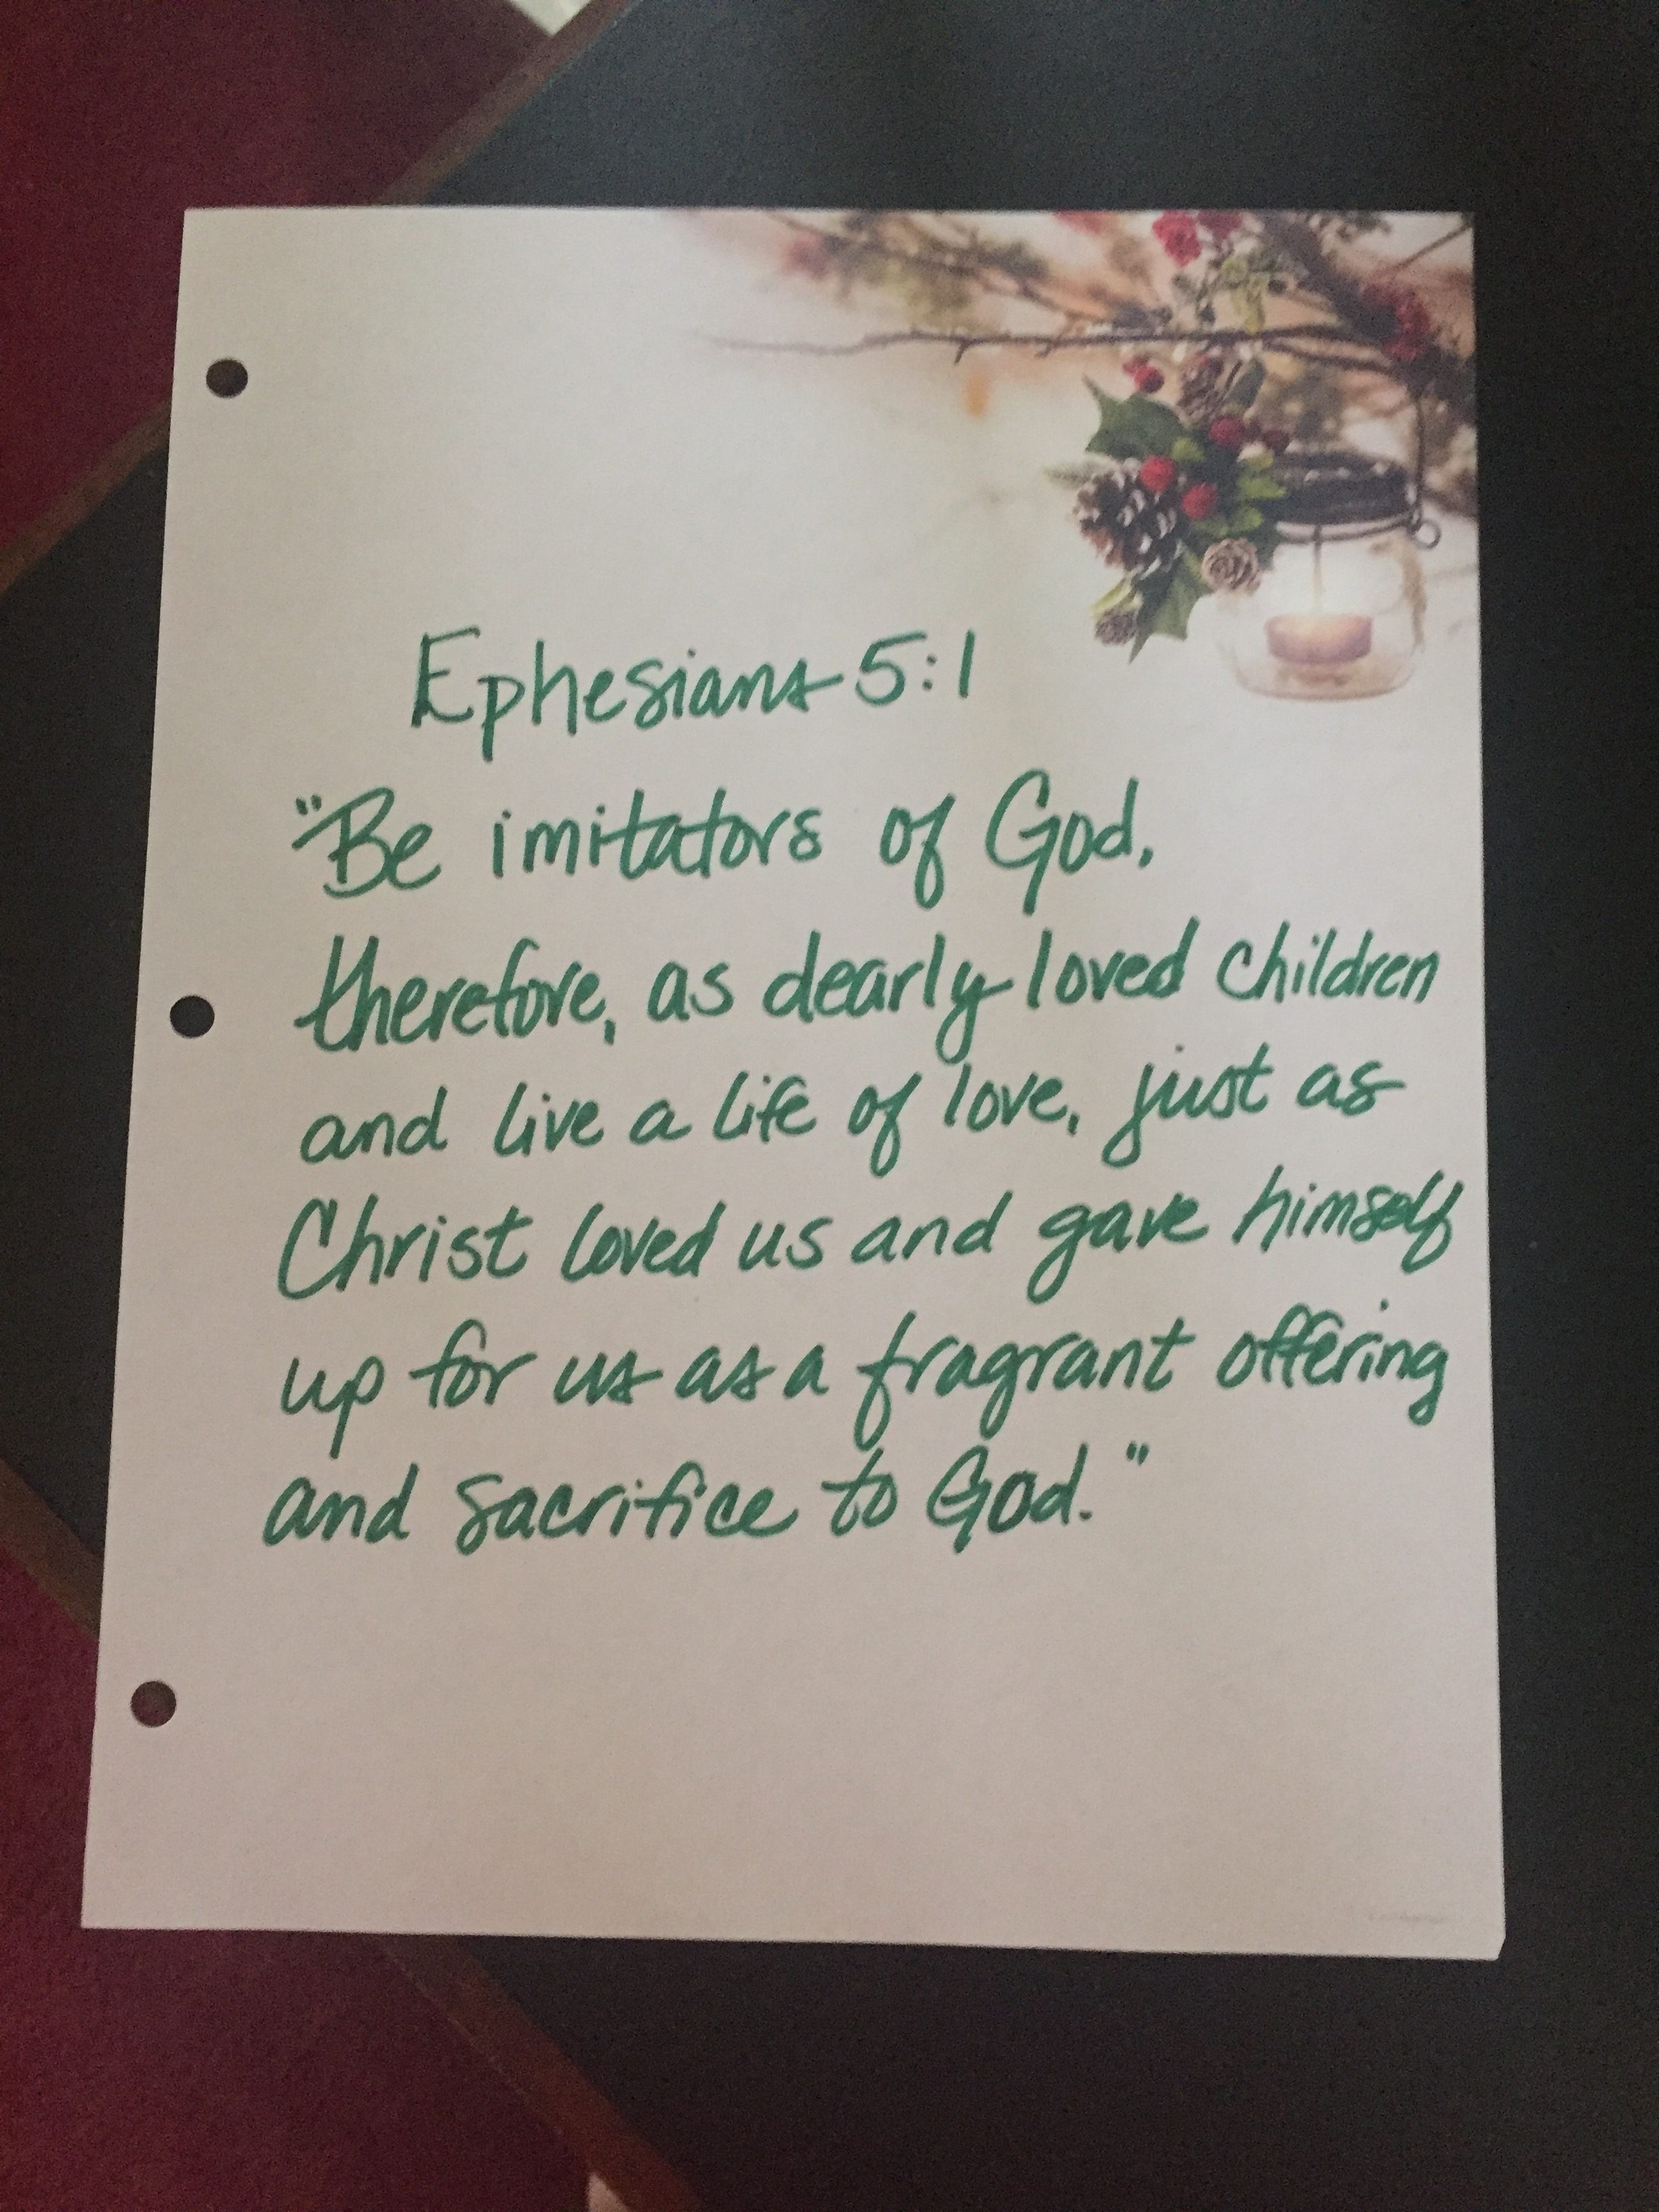 Ephesians 5:1
"Be imitators of God,
therefore, as dearly loved children
and live a life of love, just as
Christ loved us and gave himself
up for us as a fragrant offering
and sacrifice to God."